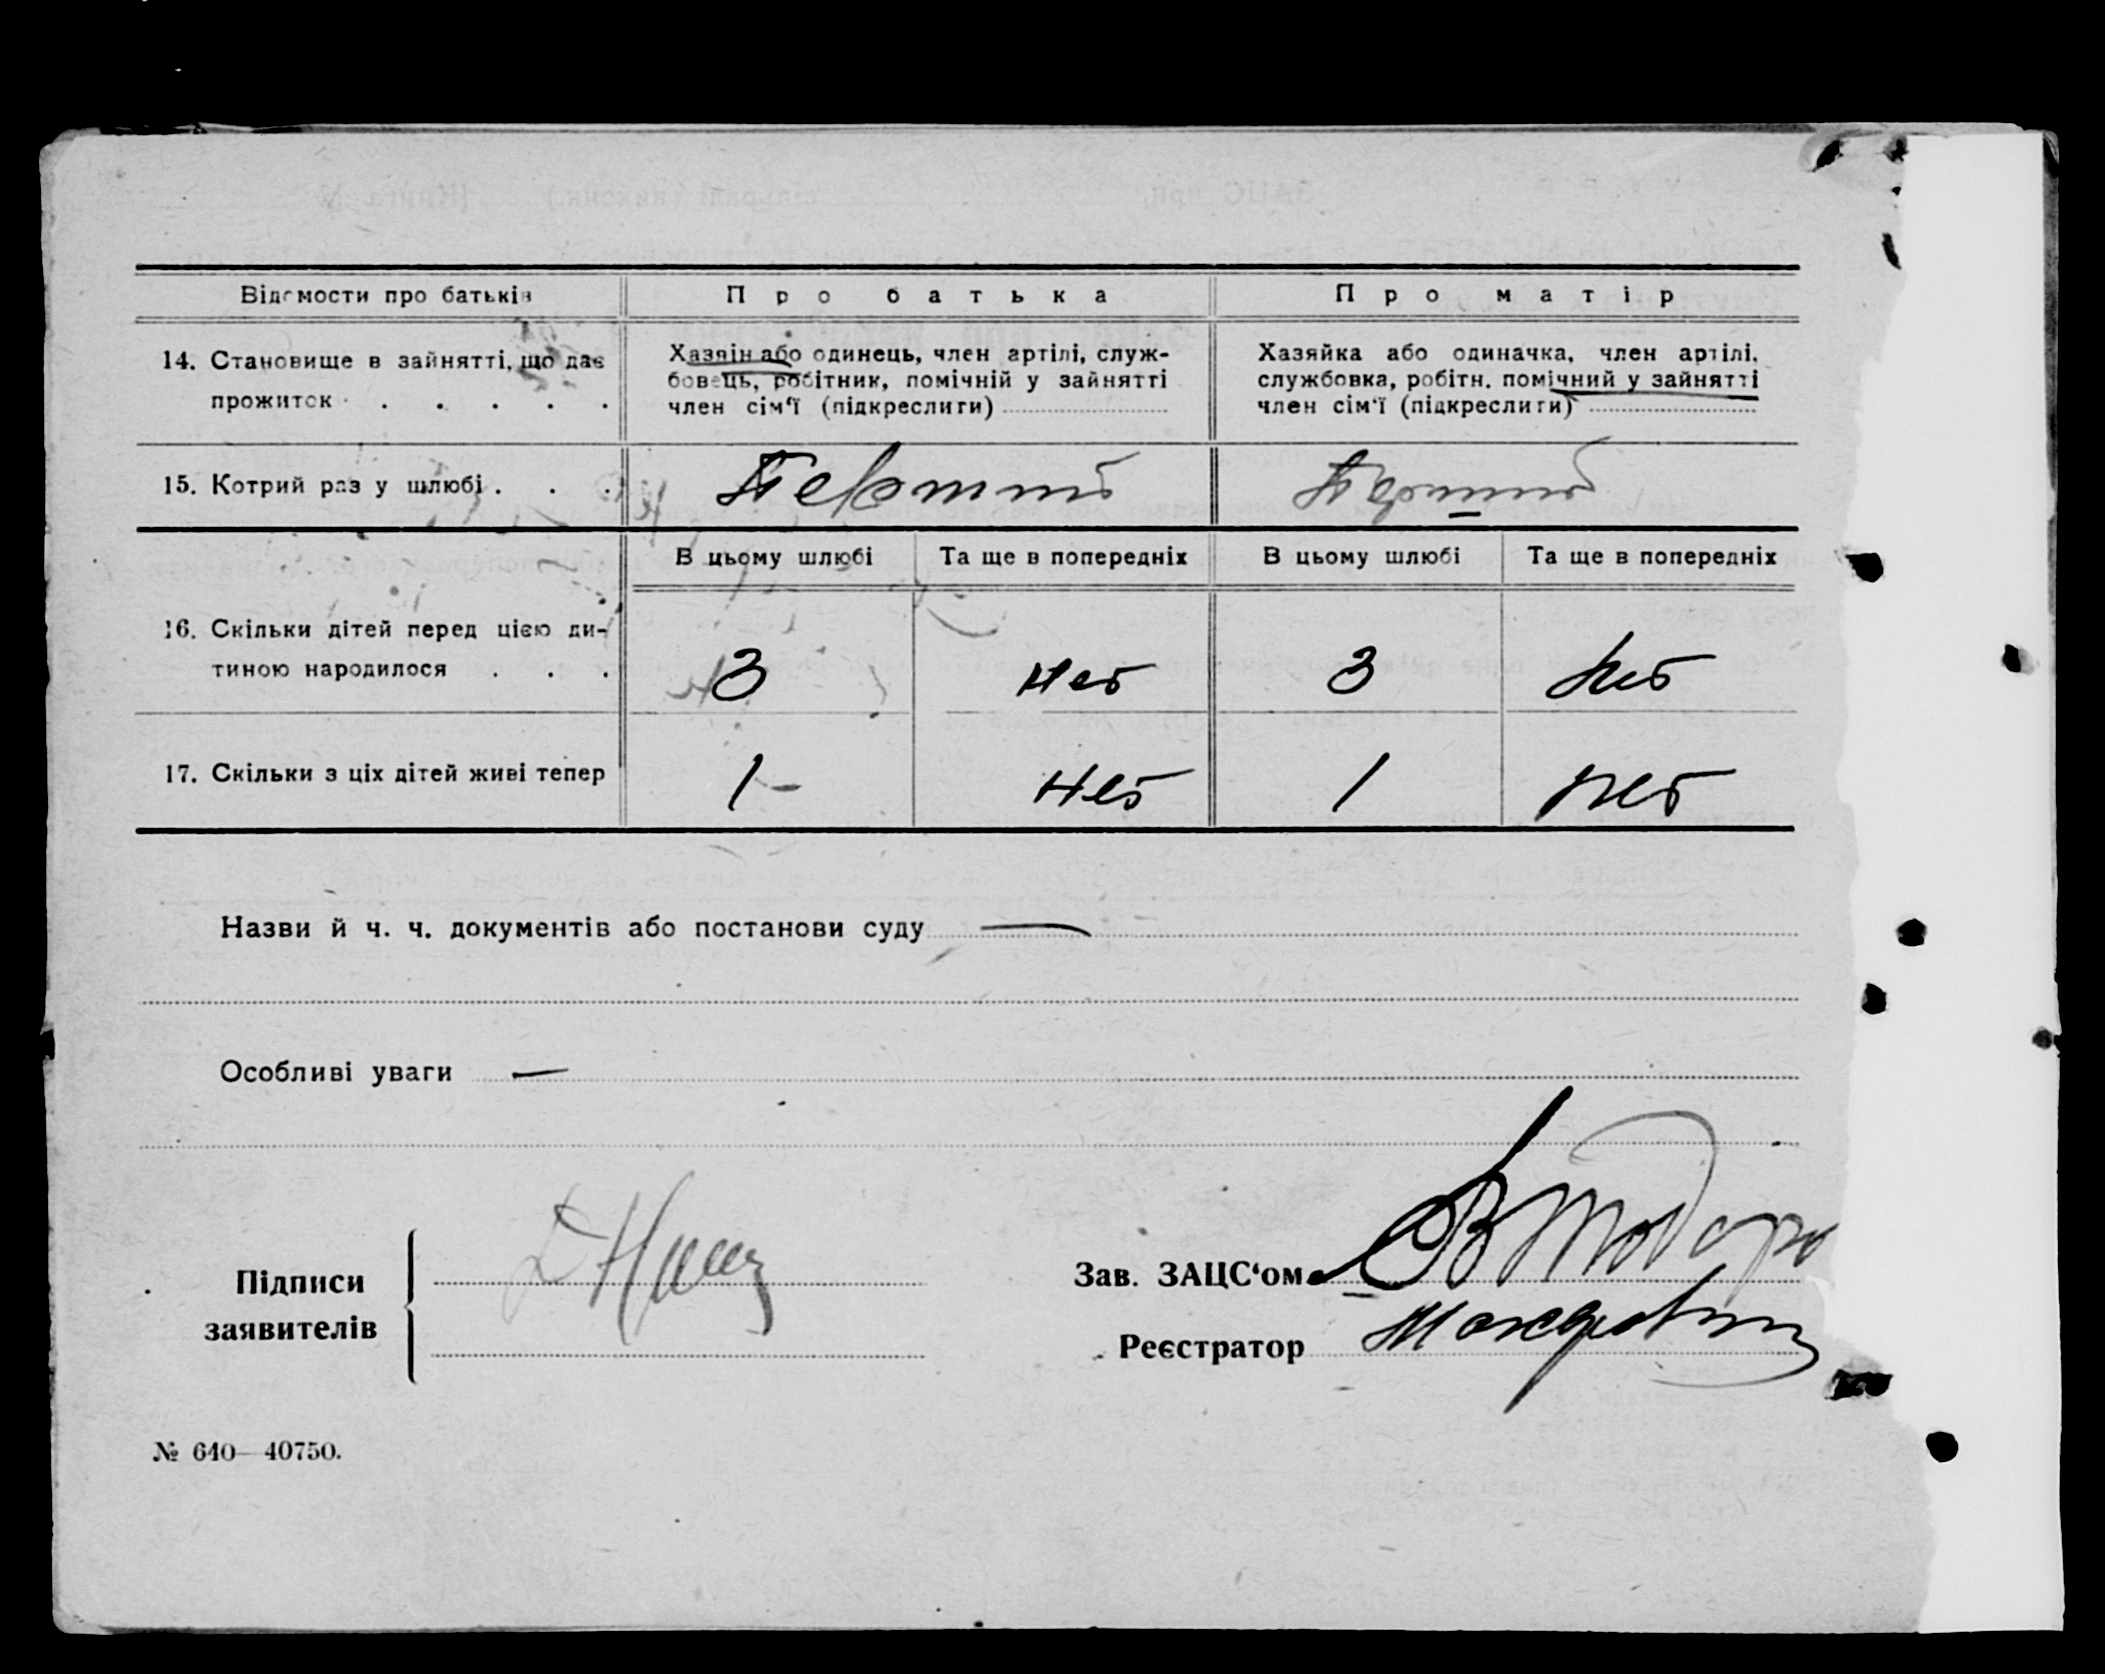 Відомости про батьків
Про батька
Про матір
14. Становище в зайнятті, що дає
прожиток . . . . .
Хазяїн або одинець, член артілі, служ-
бовець, робітник, помічній у зайнятті
член сім'ї (підкреслити)
Хазяйка або одиначка, член артілі,
службовка, робітн. помічний у зайнятті
член сім'ї (підкреслити)
15. Котрий раз у шлюбі . . .
Перший
Перший
В цьому шлюбі
Та ще в попередніх
В цьому шлюбі
Та ще в попередніх
16. Скільки дітей перед цією ди-
тиною народилося . . .
3
нет
3
нет
17. Скільки з ціх дітей живі тепер
1 -
нет
1
нет
Назви й ч. ч. документів або постанови суду —
Особливі уваги —
Підписи
заявителів
Зав. ЗАЦС‘ом
Реєстратор
№ 640—40750.